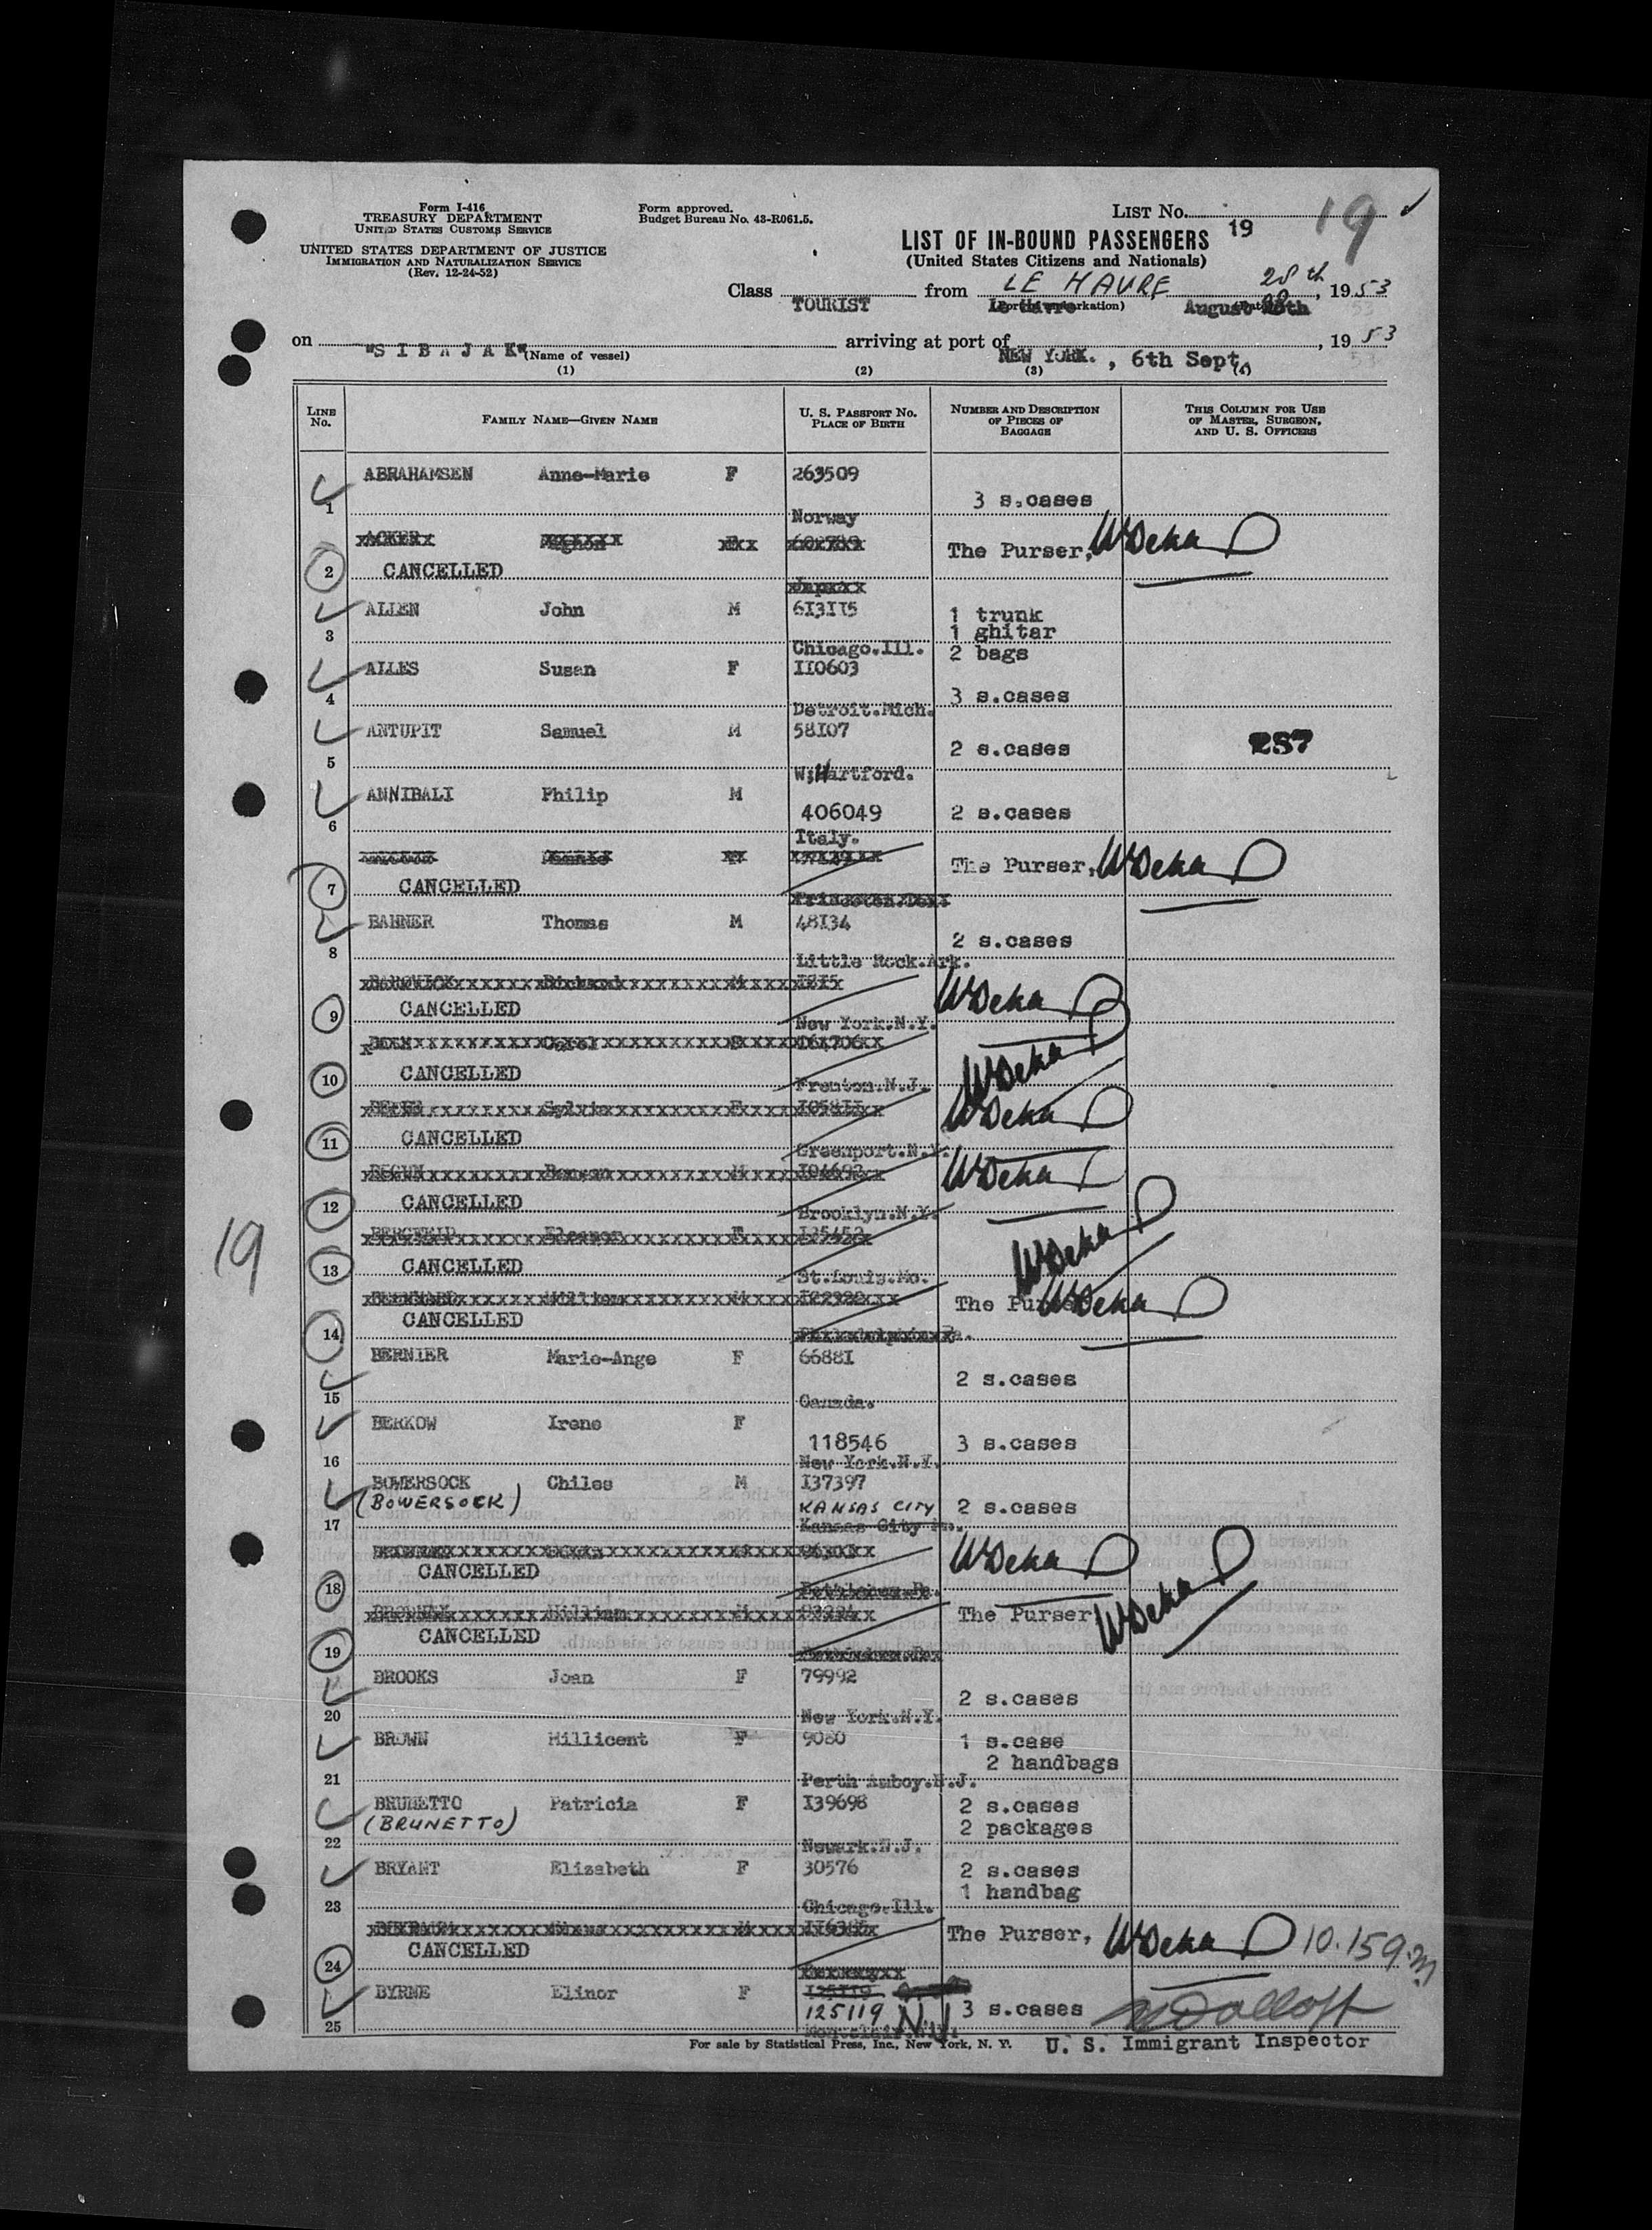 Form I-416
TREASURY DEPARTMENT
UNITED STATES CUSTOMS SERVICE
UNITED STATES DEPARTMENT OF JUSTICE
IMMIGRATION AND NATURALIZATION SERVICE
(Rev. 12-24-52)
Form approved.
Budget Bureau No. 43-R061.5.
LIST No. 19
19
LIST OF IN-BOUND PASSENGERS
(United States Citizens and Nationals)
Class TOURIST from LE HAVRE 28th, 1953
Le Havre August 28th
on "SIBAJAK" (Name of vessel) arriving at port of NEW YORK., 6th Sept, 1953
(1) (2) (3) (4)
LINE No. FAMILY NAME—GIVEN NAME U. S. PASSPORT No. PLACE OF BIRTH NUMBER AND DESCRIPTION OF PIECES OF BAGGAGE THIS COLUMN FOR USE OF MASTER, SURGEON, AND U. S. OFFICERS
1 ABRAHAMSEN Anne-Marie F 263509
3 s.cases
Norway
2 CANCELLED The Purser, WDeka
3 ALLEN John M 613115 1 trunk
1 ghitar
Chicago.Ill. 2 bags
4 ALLES Susan F 110603
3 s.cases
Detroit.Mich.
5 ANTUPIT Samuel M 58107
2 s.cases 287
W;Hartford.
6 ANNIBALI Philip M
406049 2 s.cases
Italy.
7 CANCELLED The Purser, WDeka
8 BAHNER Thomas M 48134
2 s.cases
Little Rock.Ark.
9 CANCELLED WDeka
New York.N.Y.
10 CANCELLED WDeka
N.J.
11 CANCELLED WDeka
Greenport.N.Y.
12 CANCELLED WDeka
Brooklyn.N.Y.
13 CANCELLED WDeka
St.Louis.Mo.
14 CANCELLED The Purser WDeka
15 BERNIER Marie-Ange F 66881
2 s.cases
Canada.
16 BERKOW Irene F
118546 3 s.cases
New York.N.Y.
17 BOWERSOCK Chiles M 137397
(BOWERSOCK) KANSAS CITY 2 s.cases
Kansas City Mo.
18 CANCELLED WDeka
19 CANCELLED The Purser WDeka
20 BROOKS Joan F 79992
2 s.cases
New York.N.Y.
21 BROWN Millicent F 9080 1 s.case
2 handbags
Perth Amboy.N.J.
22 BRUNETTO Patricia F 139698 2 s.cases
(BRUNETTO) 2 packages
Newark.N.J.
23 BRYANT Elizabeth F 30576 2 s.cases
1 handbag
Chicago.Ill.
24 CANCELLED The Purser, WDeka 10.159
25 BYRNE Elinor F 125119
125119 N.J 3 s.cases
Montclair.N.J.
19
For sale by Statistical Press, Inc., New York, N. Y.
U. S. Immigrant Inspector